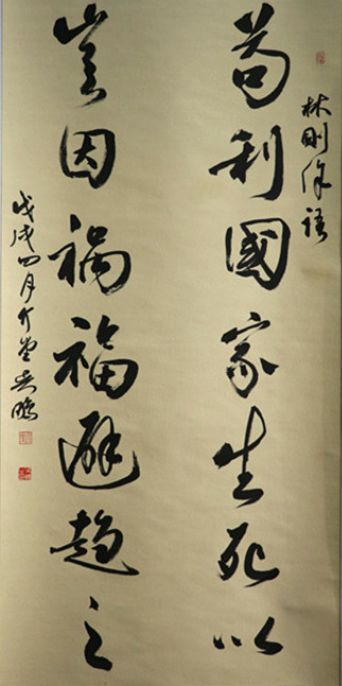 林則徐語
苟利國家生死以
豈因禍福避趨之
戊戌四月介堂吴鵬